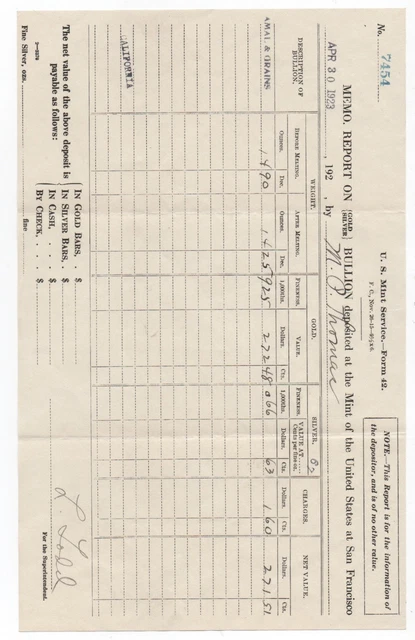 No. 7454
U. S. Mint Service.—Form 42.
NOTE.—This Report is for the information of
the depositor, and is of no other value.
MEMO. REPORT ON {GOLD SILVER} BULLION deposited at the Mint of the United States at San Francisco
APR 30 1923, 192 , by M. P. Thomas
DESCRIPTION OF BULLION.
WEIGHT.
GOLD.
SILVER. 82
CHARGES.
NET VALUE.
BEFORE MELTING.
AFTER MELTING.
FINENESS.
VALUE.
FINENESS.
VALUE AT
Cents per fine oz.
Ounces. Dec. Ounces. Dec. 1,000ths. Dollars. Cts. 1,000ths. Dollars. Cts. Dollars. Cts. Dollars. Cts.
AMAL & GRAINS 14 90 14 25 925 272 48 066 63 1 60 271 51
CALIFORNIA
The net value of the above deposit is
payable as follows:
IN GOLD BARS, . $
IN SILVER BARS, . $
IN CASH, . . . $
BY CHECK, . . . $
L. Todd
For the Superintendent.
Fine Silver, ozs. fine